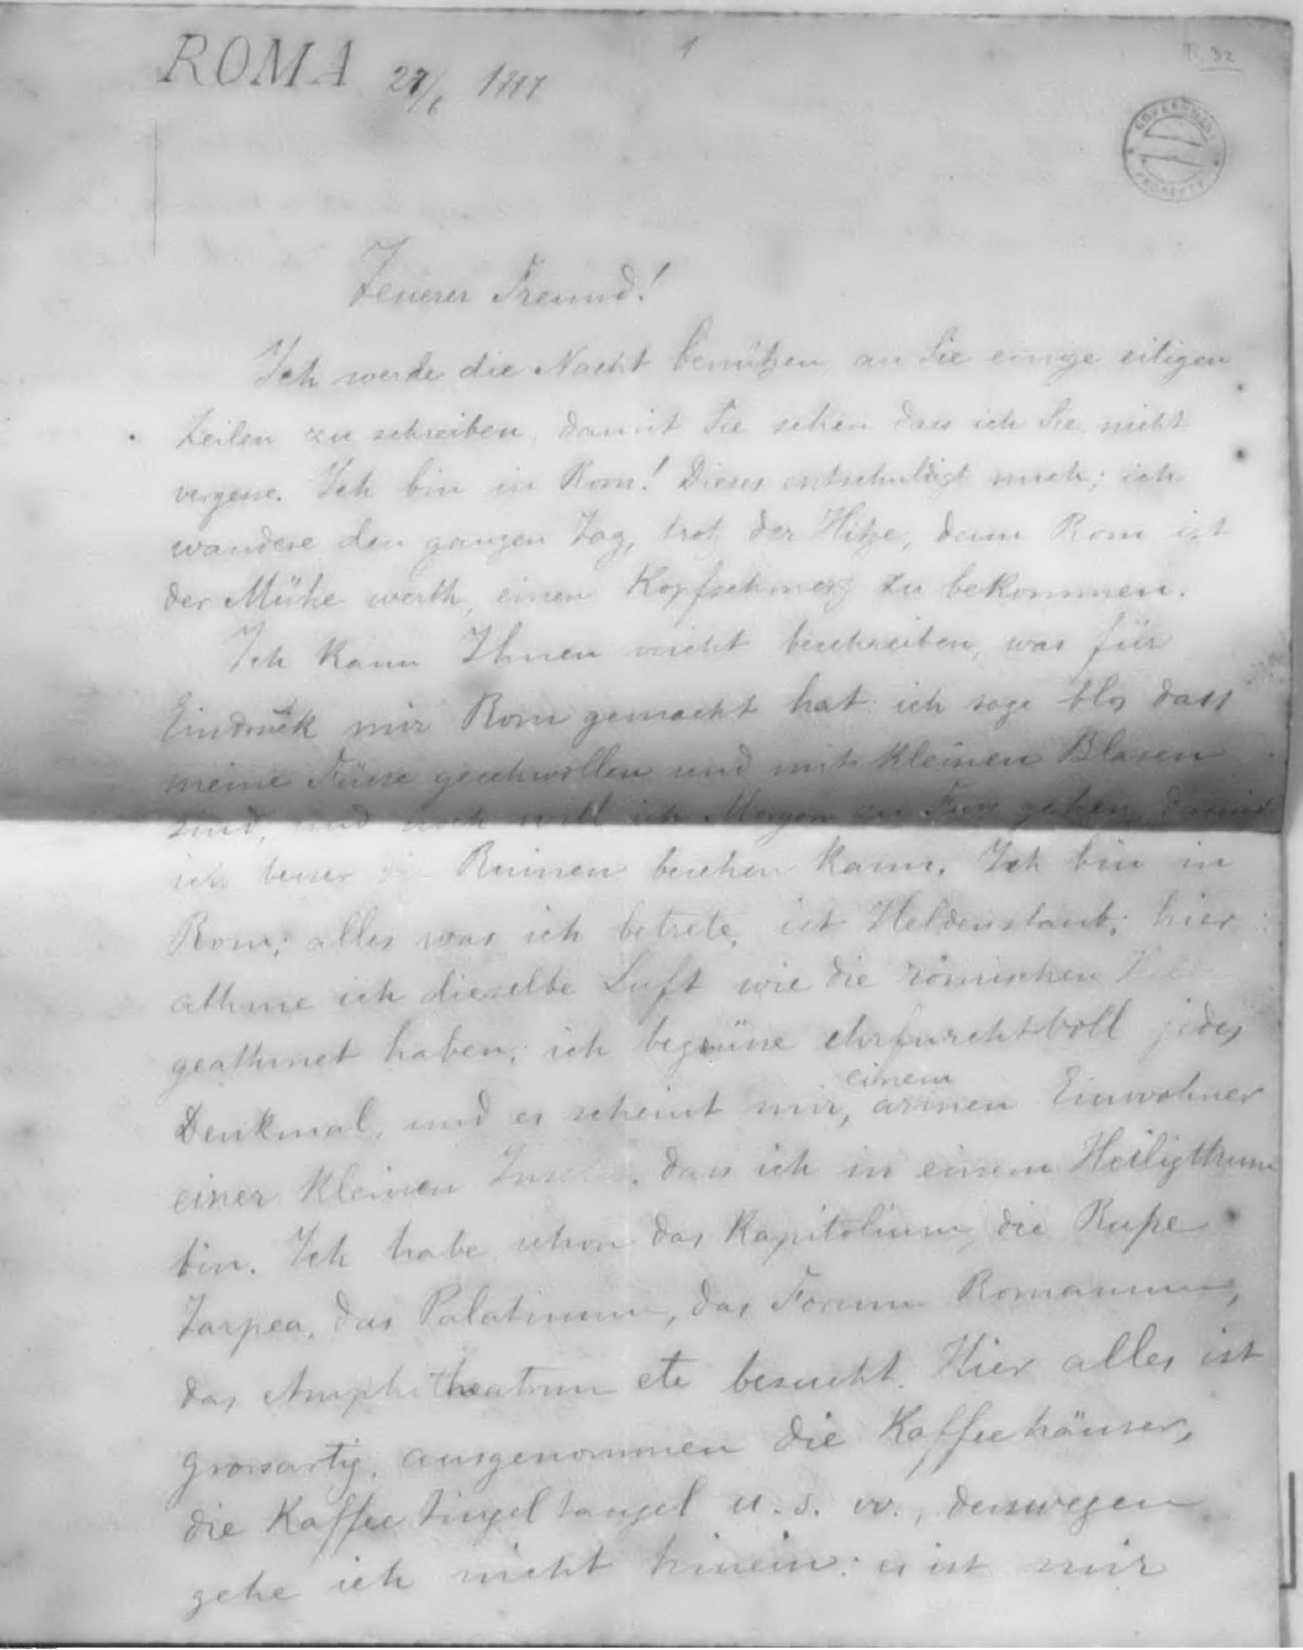 ROMA 27/6 1887
1
32
GOVERNMENT
PROPERTY
Teuerer Freund!
Ich werde die Nacht benützen an Sie einige eiligen
Zeilen zu schreiben, damit Sie sehen dass ich Sie nicht
vergesse. Ich bin in Rom! Dieses entschuldigt mich; ich
wandere den ganzen Tag, trotz der Hitze, denn Rom ist
der Mühe werth, einen Kopfschmerz zu bekommen.
Ich kann Ihnen nicht beschreiben, was für
Eindruck mir Rom gemacht hat: ich sage blos dass
meine Füsse geschwollen und mit kleinen Blasen
sind, und noch will ich Morgen zu Fuss gehen, damit
ich besser Ruinen besehen kann. Ich bin in
Rom; alles was ich betrete, ist Heldenstaub; hier
athme ich dieselbe Luft wie die römischen
geathmet haben; ich begrüsse ehrfurchtvoll jedes
Denkmal, und es scheint mir, einem armen Einwohner
einer kleinen dass ich in einem Heiligthum
bin. Ich habe schon das Kapitolium, die Rupe
Tarpea, das Palatinum, das Forum Romanum,
das Amphitheatrum etc besucht. Hier alles ist
grossartig, ausgenommen die Kaffeehäuser,
die Kaffee tingel tangel u. s. w., desswegen
gehe ich nicht hinein: es ist mir